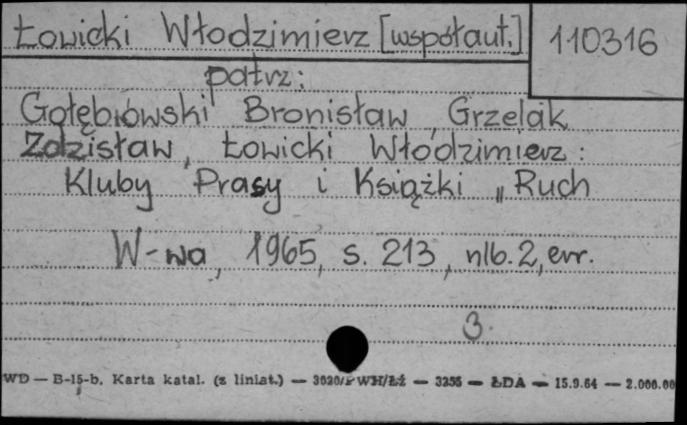 Łowicki Włodzimierz [współaut.] 110316
patrz:
Gołębiowski Bronisław, Grzelak
Zdzisław, Łowicki Włodzimierz:
Kluby Prasy i Książki „Ruch
W-wa, 1965, s. 213, nlb. 2, err.
3.
WD — B-15-b. Karta katal. (z liniat.) — 3020/PWH/Łź — 3255 — ŁDA — 15.9.64 — 2.000.00